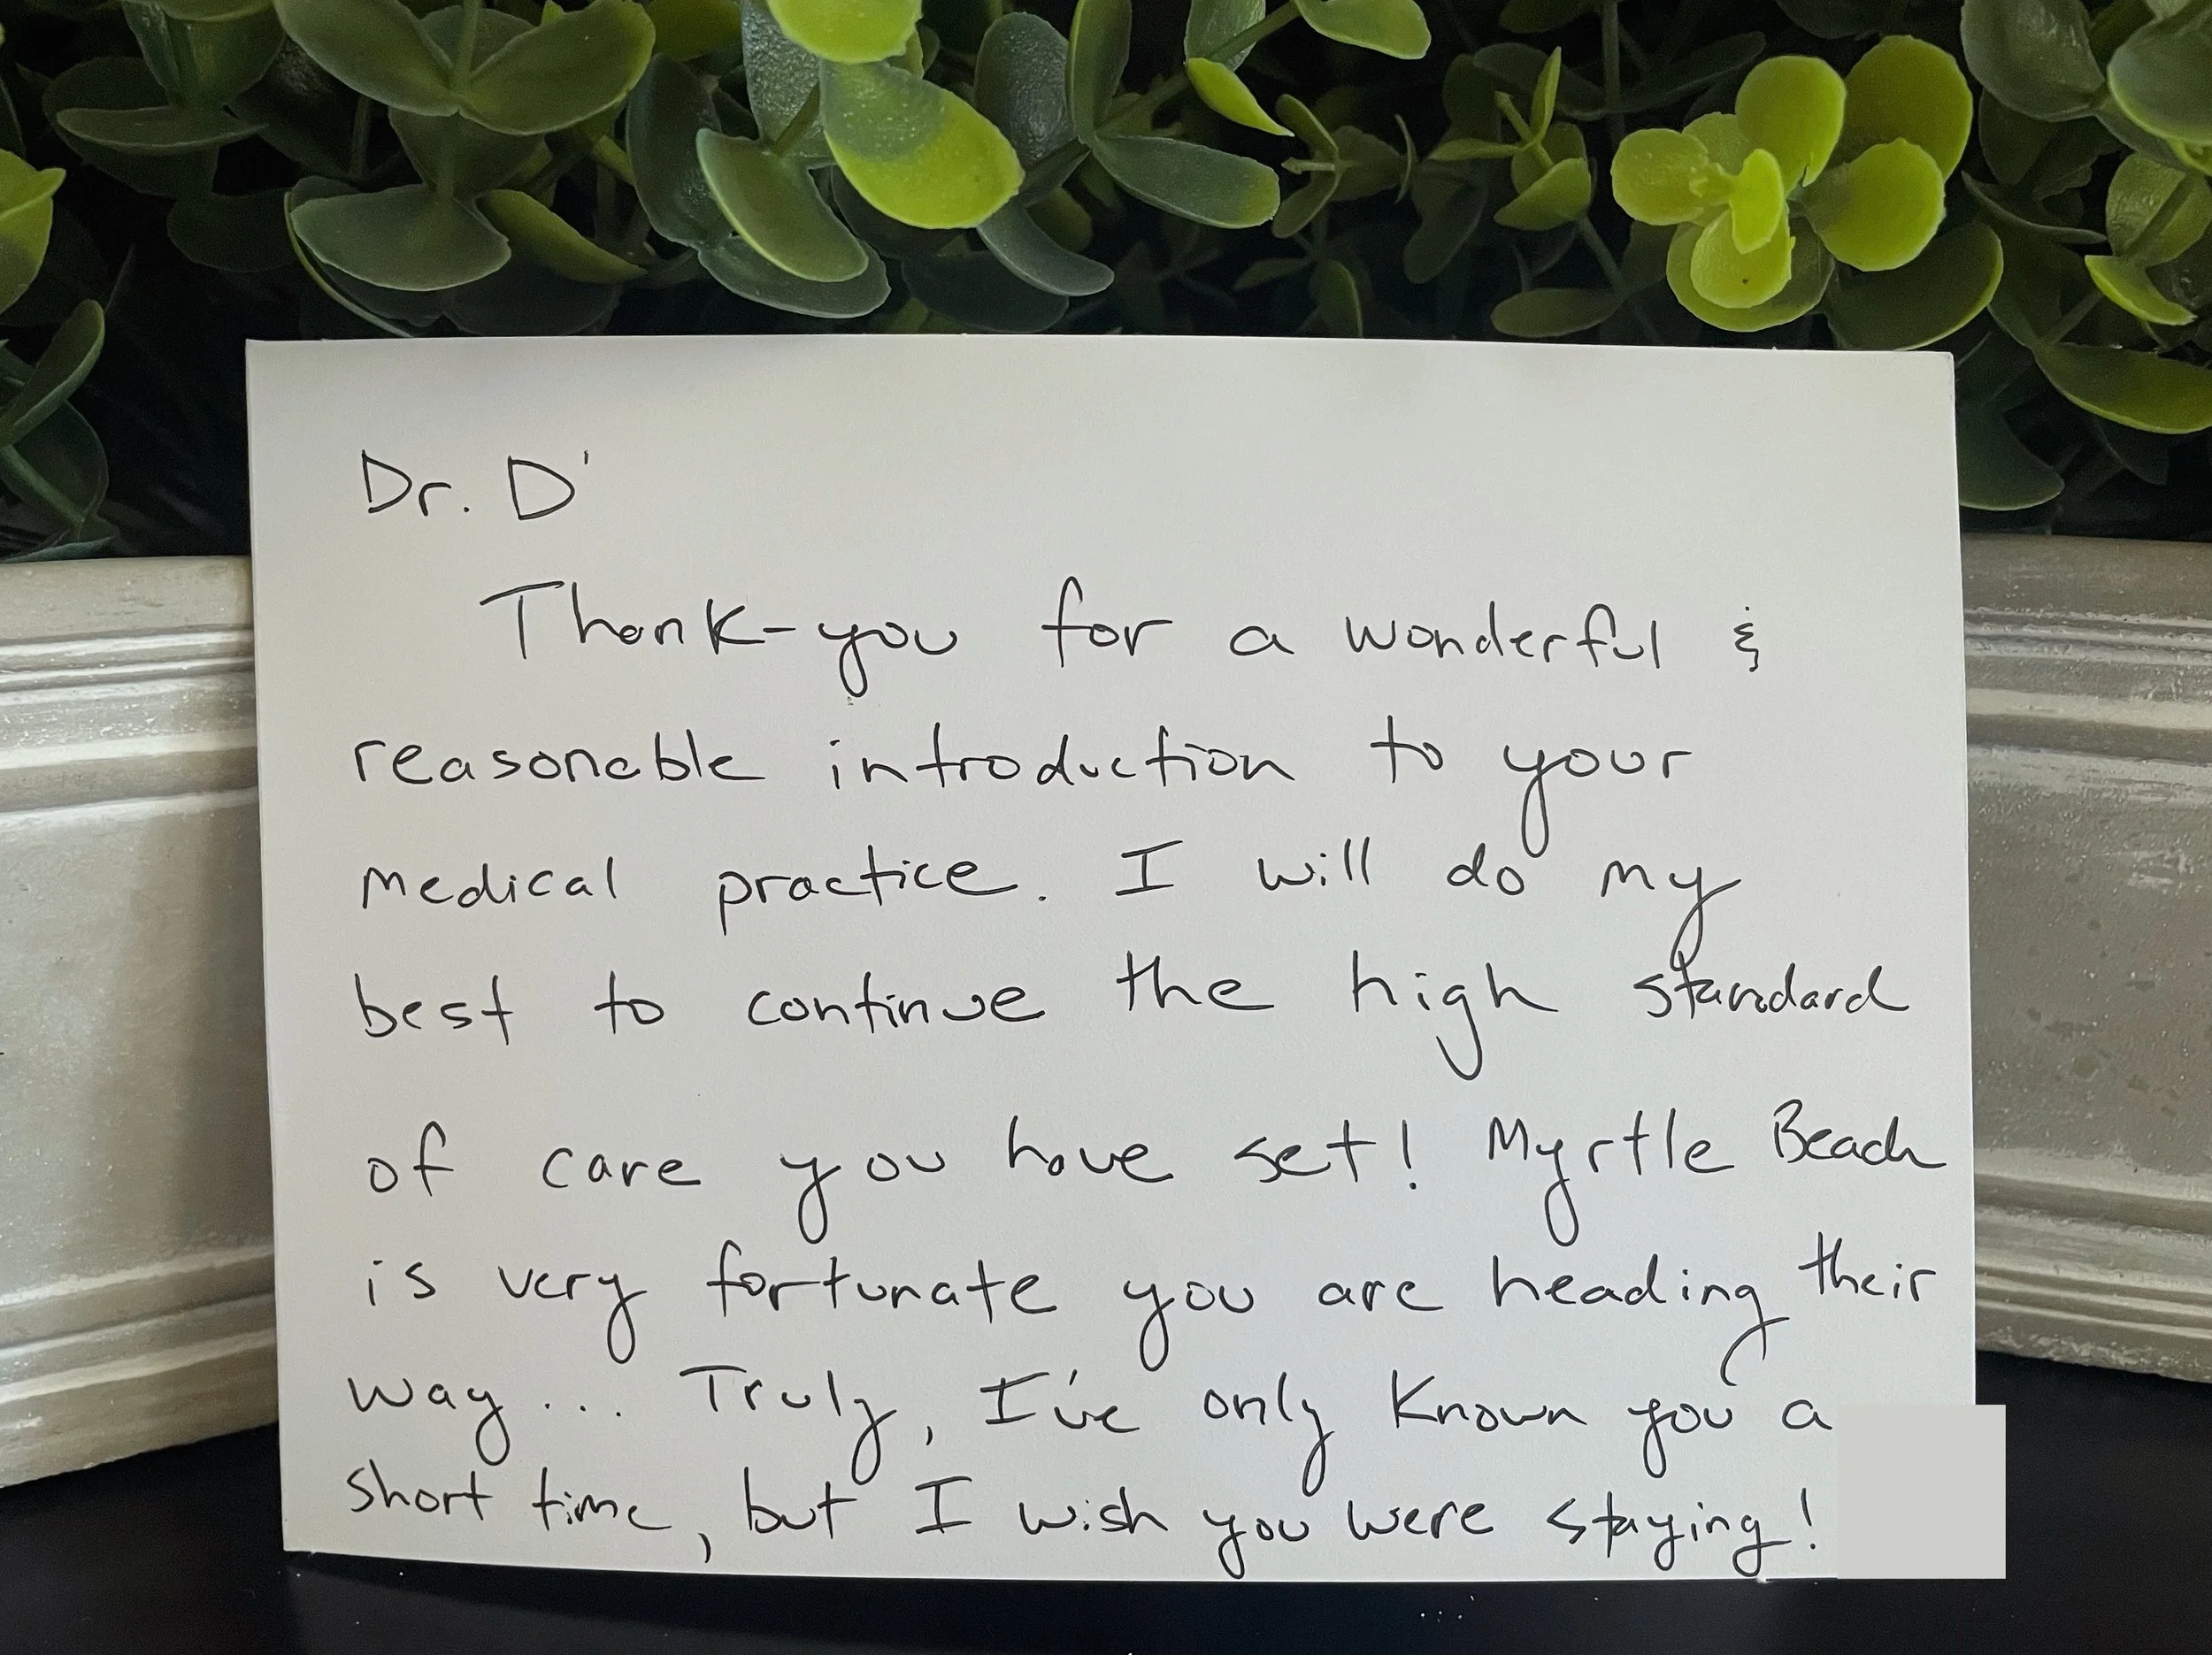 Dr. D'
Thank-you for a wonderful &
reasonable introduction to your
medical practice. I will do my
best to continue the high standard
of care you have set! Myrtle Beach
is very fortunate you are heading their
way... Truly, I've only known you a
short time, but I wish you were staying!